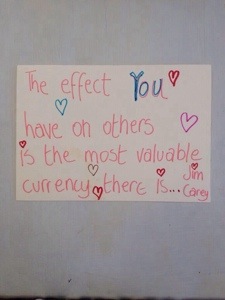 The effect You
have on others
is the most valuable
currency there is... Jim
Carey